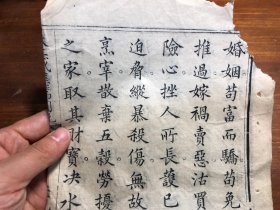 婚姻苟富而驕苟免
推過嫁禍賣惡沽買
險心挫人所長護已
迫脅縱暴殺傷無故
烹宰散棄五穀勞擾
之家取其財寶決水